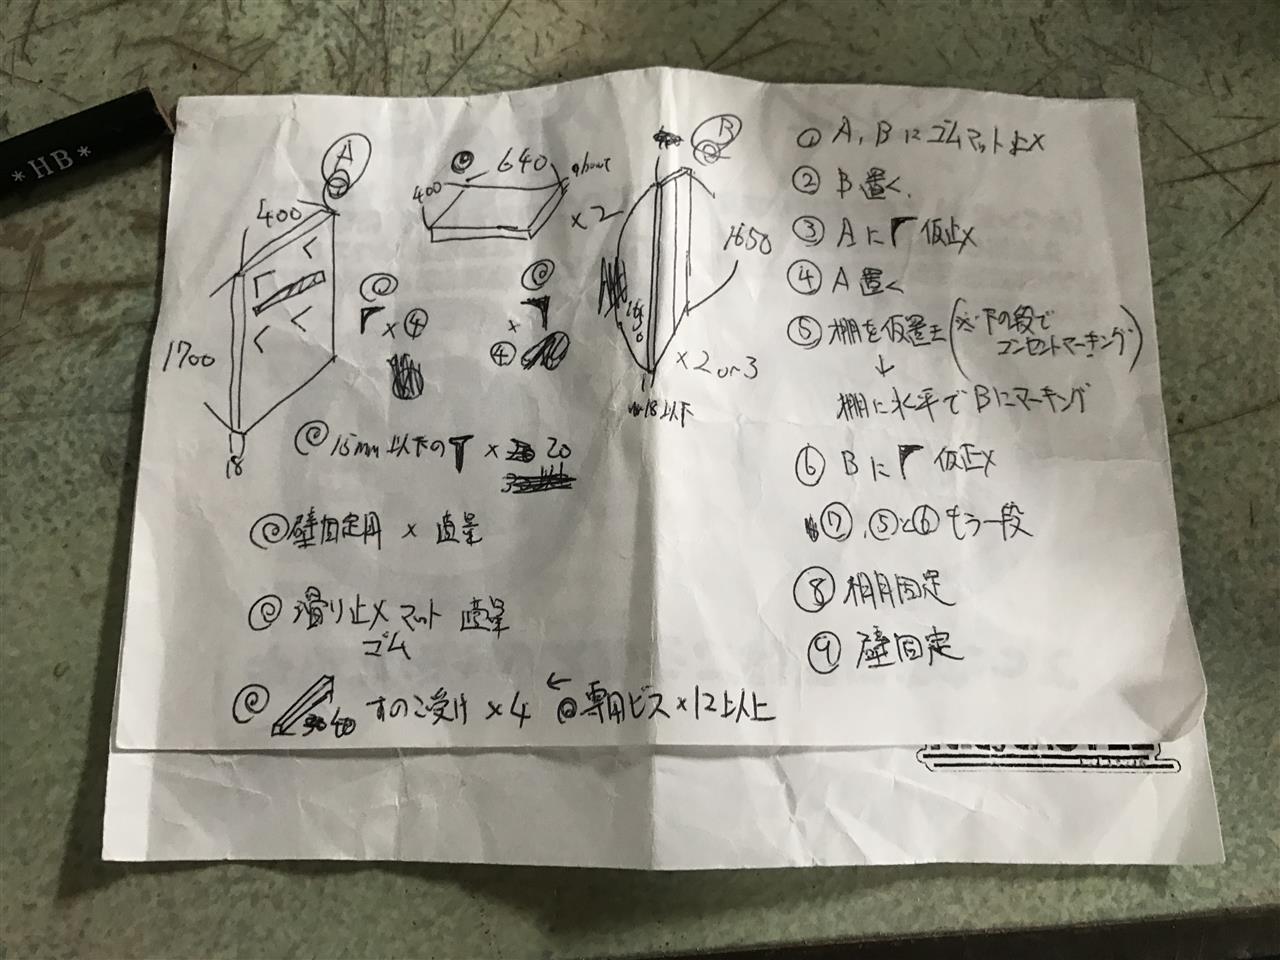 *HB*
A
400
1700
18
640
about
400
×2
×④
×
④
B
1650
1650
×2 or 3
18以下
15mm以下の ×20
壁固定用 × 適量
滑り止メマット 適量
ゴム
40 すのこ受け ×4 ← 専用ビス×12以上
① A, Bにゴムマット止メ
② B置く.
③ Aに 仮止メ
④ A置く
⑤ 棚を仮置き (※下の段で
コンセントマーキング)
↓
棚に水平でBにマーキング
⑥ Bに 仮止メ
⑦, ⑤と⑥もう一段
⑧ 棚固定
⑨ 壁固定